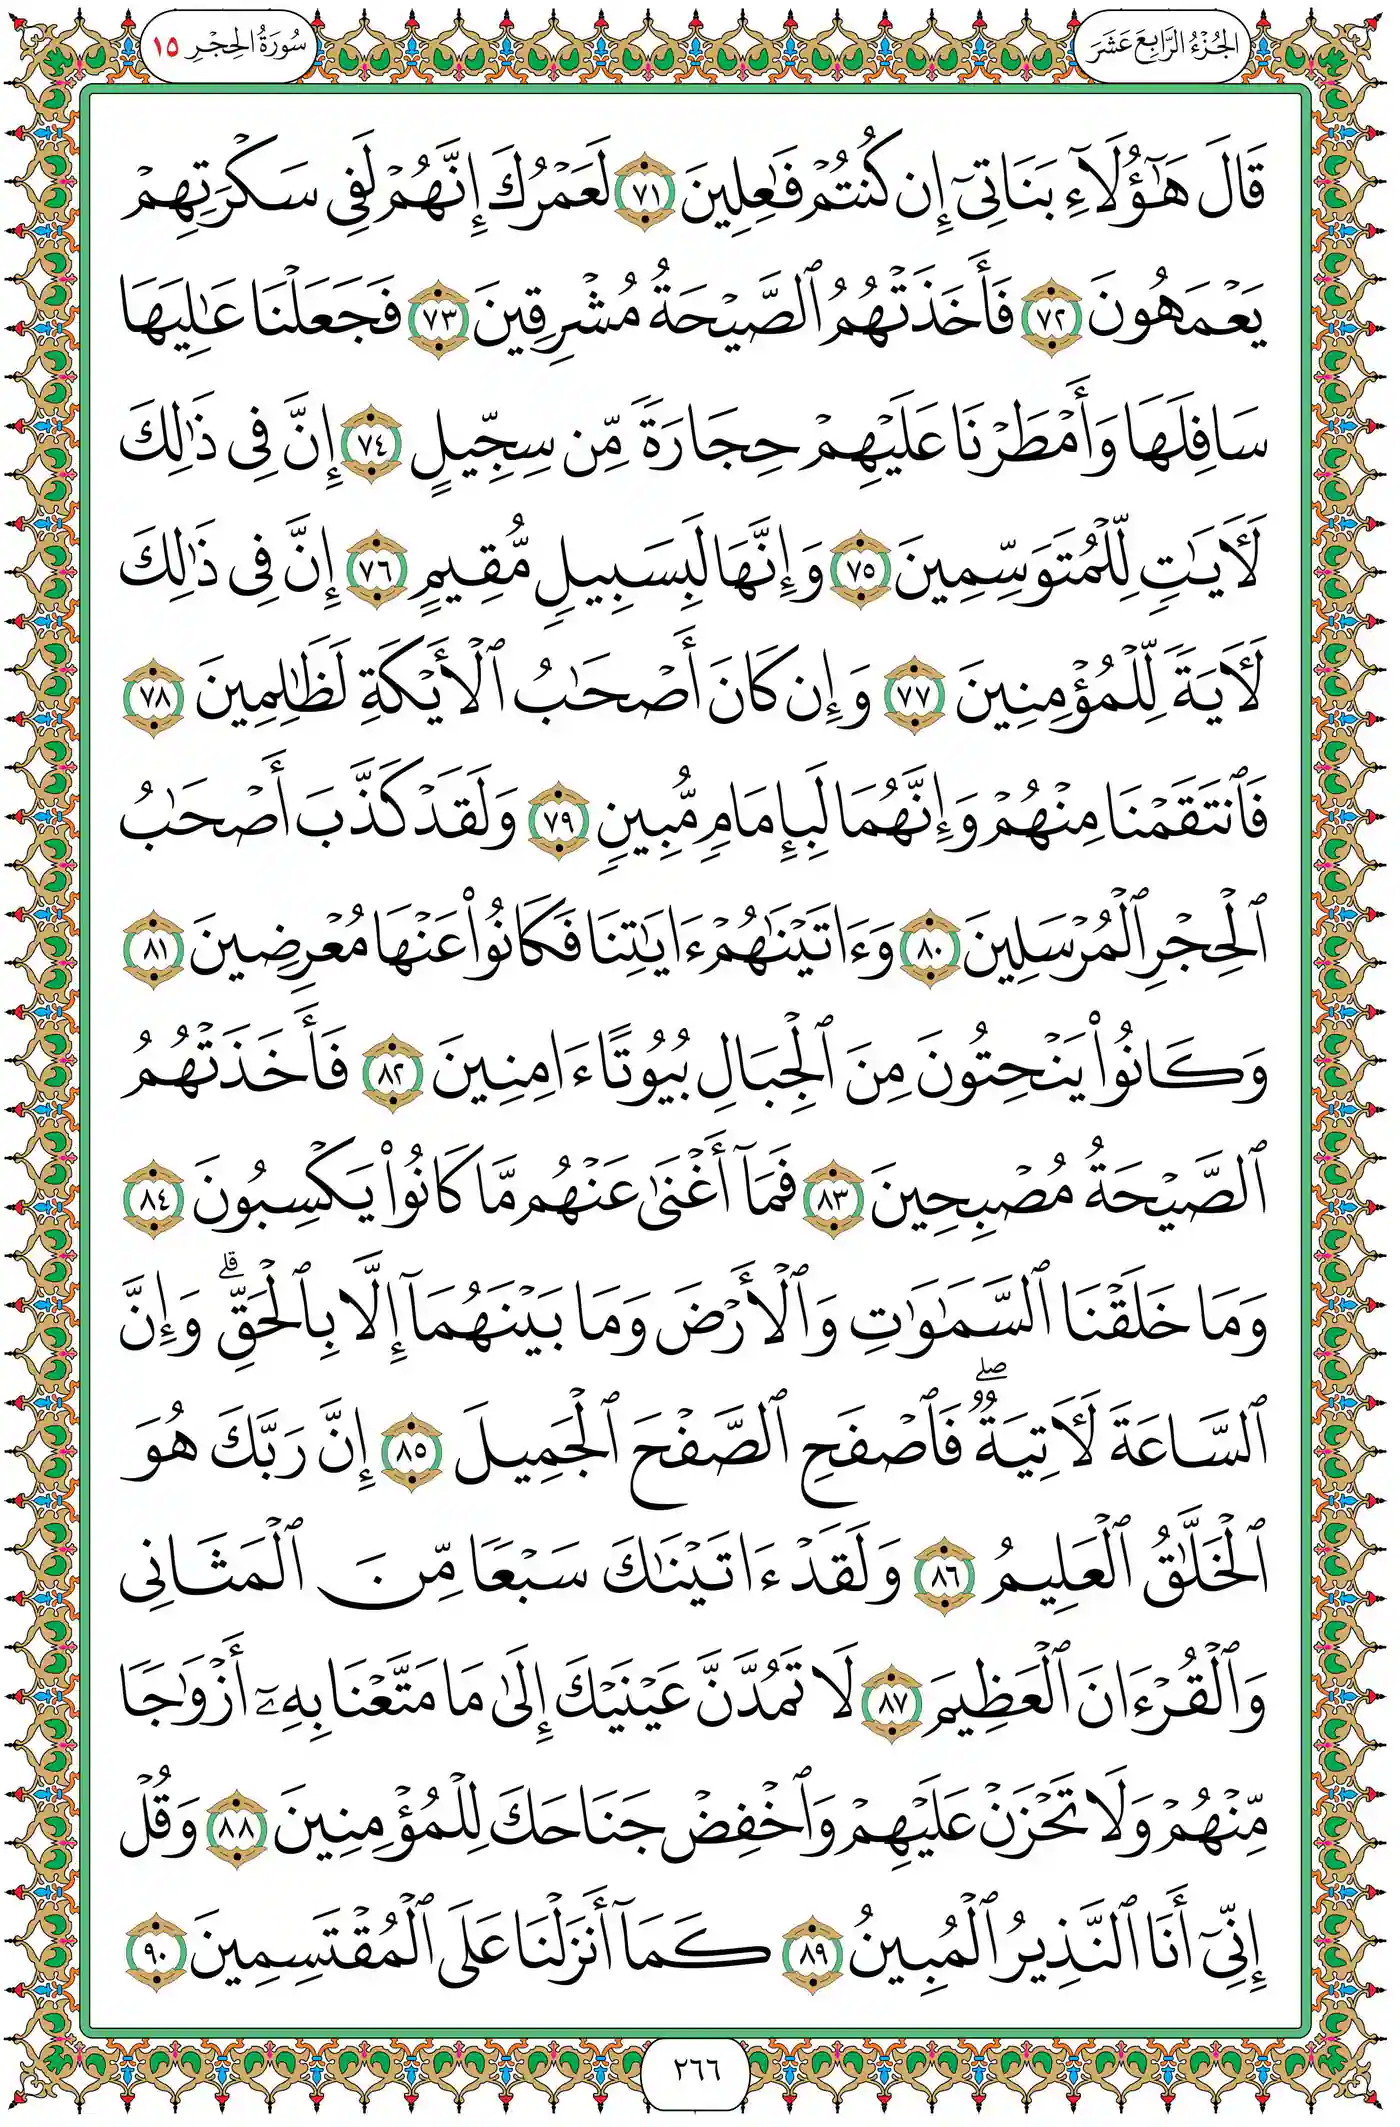 الجُزْءُ الرَّابِعَ عَشَرَ
سُورَةُ الحِجْرِ ١٥
قَالَ هَٰٓؤُلَآءِ بَنَاتِىٓ إِن كُنتُمْ فَٰعِلِينَ ٧١ لَعَمْرُكَ إِنَّهُمْ لَفِى سَكْرَتِهِمْ
يَعْمَهُونَ ٧٢ فَأَخَذَتْهُمُ ٱلصَّيْحَةُ مُشْرِقِينَ ٧٣ فَجَعَلْنَا عَٰلِيَهَا
سَافِلَهَا وَأَمْطَرْنَا عَلَيْهِمْ حِجَارَةً مِّن سِجِّيلٍ ٧٤ إِنَّ فِى ذَٰلِكَ
لَءَايَٰتٍ لِّلْمُتَوَسِّمِينَ ٧٥ وَإِنَّهَا لَبِسَبِيلٍ مُّقِيمٍ ٧٦ إِنَّ فِى ذَٰلِكَ
لَءَايَةً لِّلْمُؤْمِنِينَ ٧٧ وَإِن كَانَ أَصْحَٰبُ ٱلْأَيْكَةِ لَظَٰلِمِينَ ٧٨
فَٱنتَقَمْنَا مِنْهُمْ وَإِنَّهُمَا لَبِإِمَامٍ مُّبِينٍ ٧٩ وَلَقَدْ كَذَّبَ أَصْحَٰبُ
ٱلْحِجْرِ ٱلْمُرْسَلِينَ ٨٠ وَءَاتَيْنَٰهُمْ ءَايَٰتِنَا فَكَانُوا۟ عَنْهَا مُعْرِضِينَ ٨١
وَكَانُوا۟ يَنْحِتُونَ مِنَ ٱلْجِبَالِ بُيُوتًا ءَامِنِينَ ٨٢ فَأَخَذَتْهُمُ
ٱلصَّيْحَةُ مُصْبِحِينَ ٨٣ فَمَآ أَغْنَىٰ عَنْهُم مَّا كَانُوا۟ يَكْسِبُونَ ٨٤
وَمَا خَلَقْنَا ٱلسَّمَٰوَٰتِ وَٱلْأَرْضَ وَمَا بَيْنَهُمَآ إِلَّا بِٱلْحَقِّ ۗ وَإِنَّ
ٱلسَّاعَةَ لَءَاتِيَةٌ ۖ فَٱصْفَحِ ٱلصَّفْحَ ٱلْجَمِيلَ ٨٥ إِنَّ رَبَّكَ هُوَ
ٱلْخَلَّٰقُ ٱلْعَلِيمُ ٨٦ وَلَقَدْ ءَاتَيْنَٰكَ سَبْعًا مِّنَ ٱلْمَثَانِى
وَٱلْقُرْءَانَ ٱلْعَظِيمَ ٨٧ لَا تَمُدَّنَّ عَيْنَيْكَ إِلَىٰ مَا مَتَّعْنَا بِهِۦٓ أَزْوَٰجًا
مِّنْهُمْ وَلَا تَحْزَنْ عَلَيْهِمْ وَٱخْفِضْ جَنَاحَكَ لِلْمُؤْمِنِينَ ٨٨ وَقُلْ
إِنِّىٓ أَنَا ٱلنَّذِيرُ ٱلْمُبِينُ ٨٩ كَمَآ أَنزَلْنَا عَلَى ٱلْمُقْتَسِمِينَ ٩٠
٢٦٦